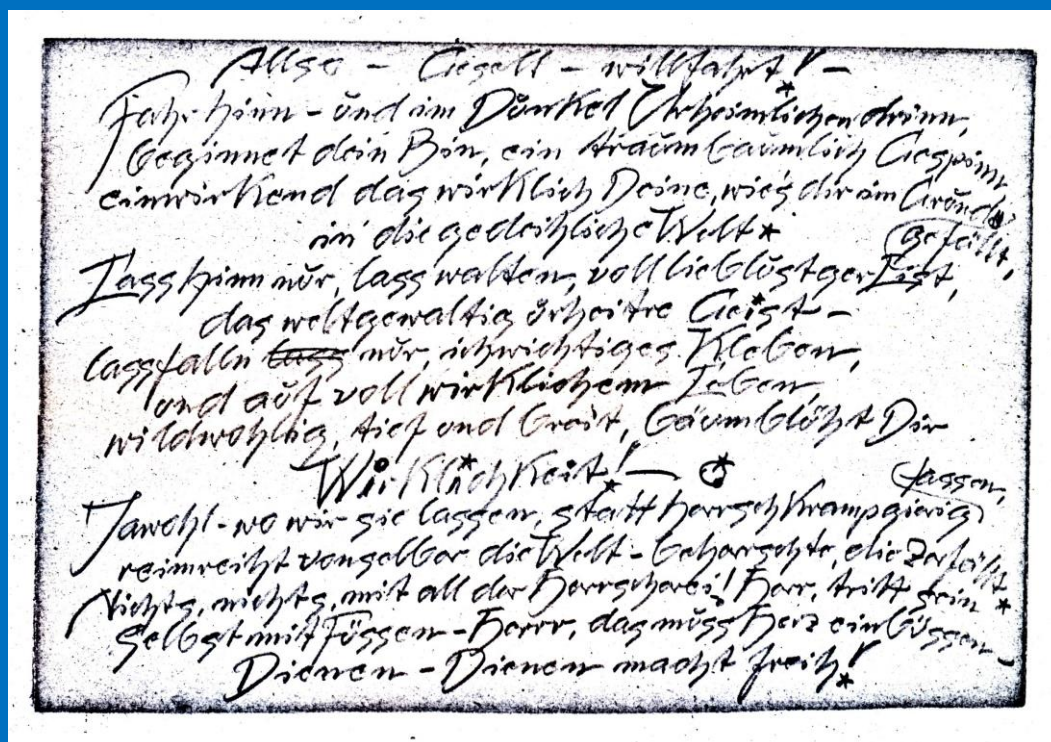 Allso – Gesell – willfahrt! –
Fahr hinn – und im Dunkel Urheimlichen drinn,
beginnet dein Bin, ein traumbaumlich Gespinn
einwirkend das wirklich Deine, wie's dir im Grunde
gefällt,
in die gedeihliche Welt*
Lass hinn nur, lass walten, voll lieblustger List,
das weltgewaltig urheitre Geist –
lassfalln lass nur, ichwichtiges Kleben,
und auf vollwirklichem Leben,
wildwohlig, tief und breit, bäumblüht Dir
Wirklichkeit! –
Jawohl – wo wir sie lassen, statt herrschkrampfgierig
fassen,
reimreiht vonselber die Welt – beherrschte, die zerfällt*
Nichts, nichts, mit all der Herrscherei! Herr, tritt sein
Selbst mit Füssen – Herrr, das muss Herz einbüssen –
Dienen – Dienen macht freih!